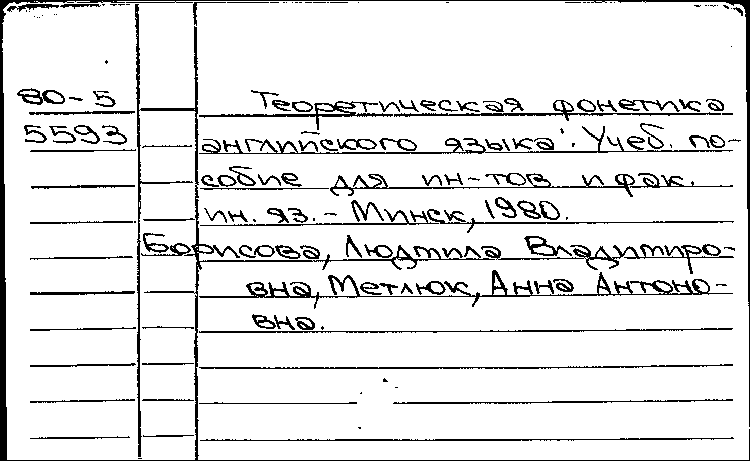 80-5
5593
Теоретическая фонетика
английского языка: Учеб. по-
собие для ин-тов и фак.
ин. яз. - Минск, 1980.
Борисова, Людмила Владимиро-
вна, Метлюк, Анна Антоно-
вна.